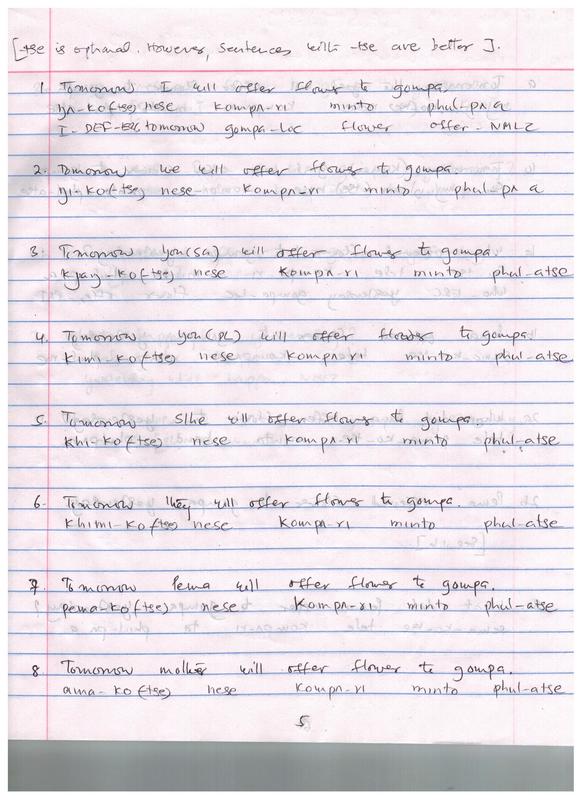 [-tse is optional. However, sentences with -tse are better].
1. Tomorrow I will offer flower to gompa.
ŋʌ-ko(-tse) nese kompʌ-ri minto phul-pʌ a
I-DEF-ERG tomorrow gompa-LOC flower offer-NMLZ
2. Tomorrow we will offer flower to gompa.
ŋi-ko(-tse) nese- kompʌ-ri minto phul-pʌ a
3. Tomorrow you(SG) will offer flower to gompa.
kyaŋ-ko(-tse) nese kompʌ-ri minto phul-atse
4. Tomorrow you(PL) will offer flower to gompa.
kimi-ko(-tse) nese kompʌ-ri minto phul-atse
5. Tomorrow S/he will offer flower to gompa
khi-ko(-tse) nese kompʌ-ri minto phul-atse
6. Tomorrow they will offer flower to gompa.
khimi-ko(-tse) nese kompʌ-ri minto phul-atse
7. Tomorrow Pema will offer flower to gompa.
pema-ko(-tse) nese kompʌ-ri minto phul-atse
8. Tomorrow mother will offer flower to gompa.
ama-ko(-tse) nese kompʌ-ri minto phul-atse
5